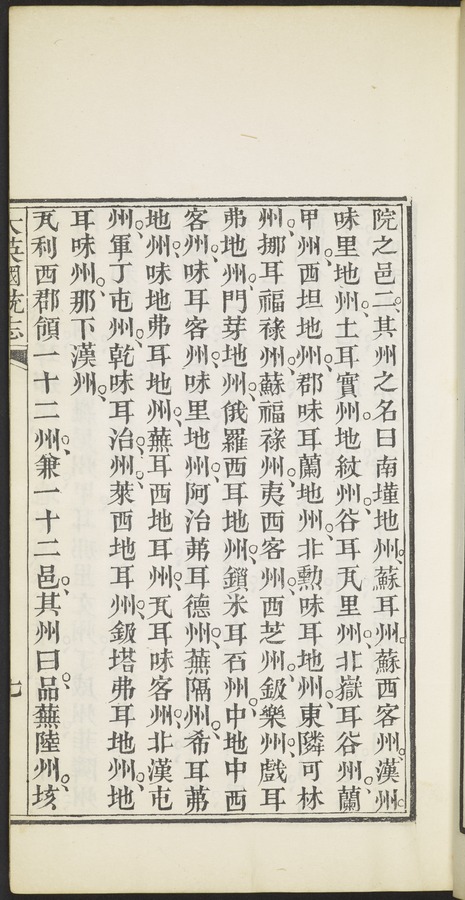 院之邑二、其州之名曰南墐地州、蘇耳州、蘇西客州、漢州、
味里地州、土耳實州、地紋州、谷耳瓦里州、北嶽耳谷州、蘭
甲州、西坦地州、郡味耳蘭地州、北勳味耳地州、東隣可林
州、挪耳福祿州、蘇福祿州、夷西客州、西芝州、鈑樂州、戲耳
弗地州、門芽地州、俄羅西耳地州、鎖米耳石州、中地中西
客州、味耳客州、味里地州、阿治茀耳德州、蕪隔州、希耳茀
地州、味地弗耳地州、蕪耳西地耳州、瓦耳味客州、北漢屯
州、軍丁屯州、乾味耳治州、萊西地耳州、鈑塔弗耳地州、地
耳味州、那下漢州、
瓦利西郡領一十二州、兼一十二邑、其州曰、品蕪陸州、垓
大英國統志
七